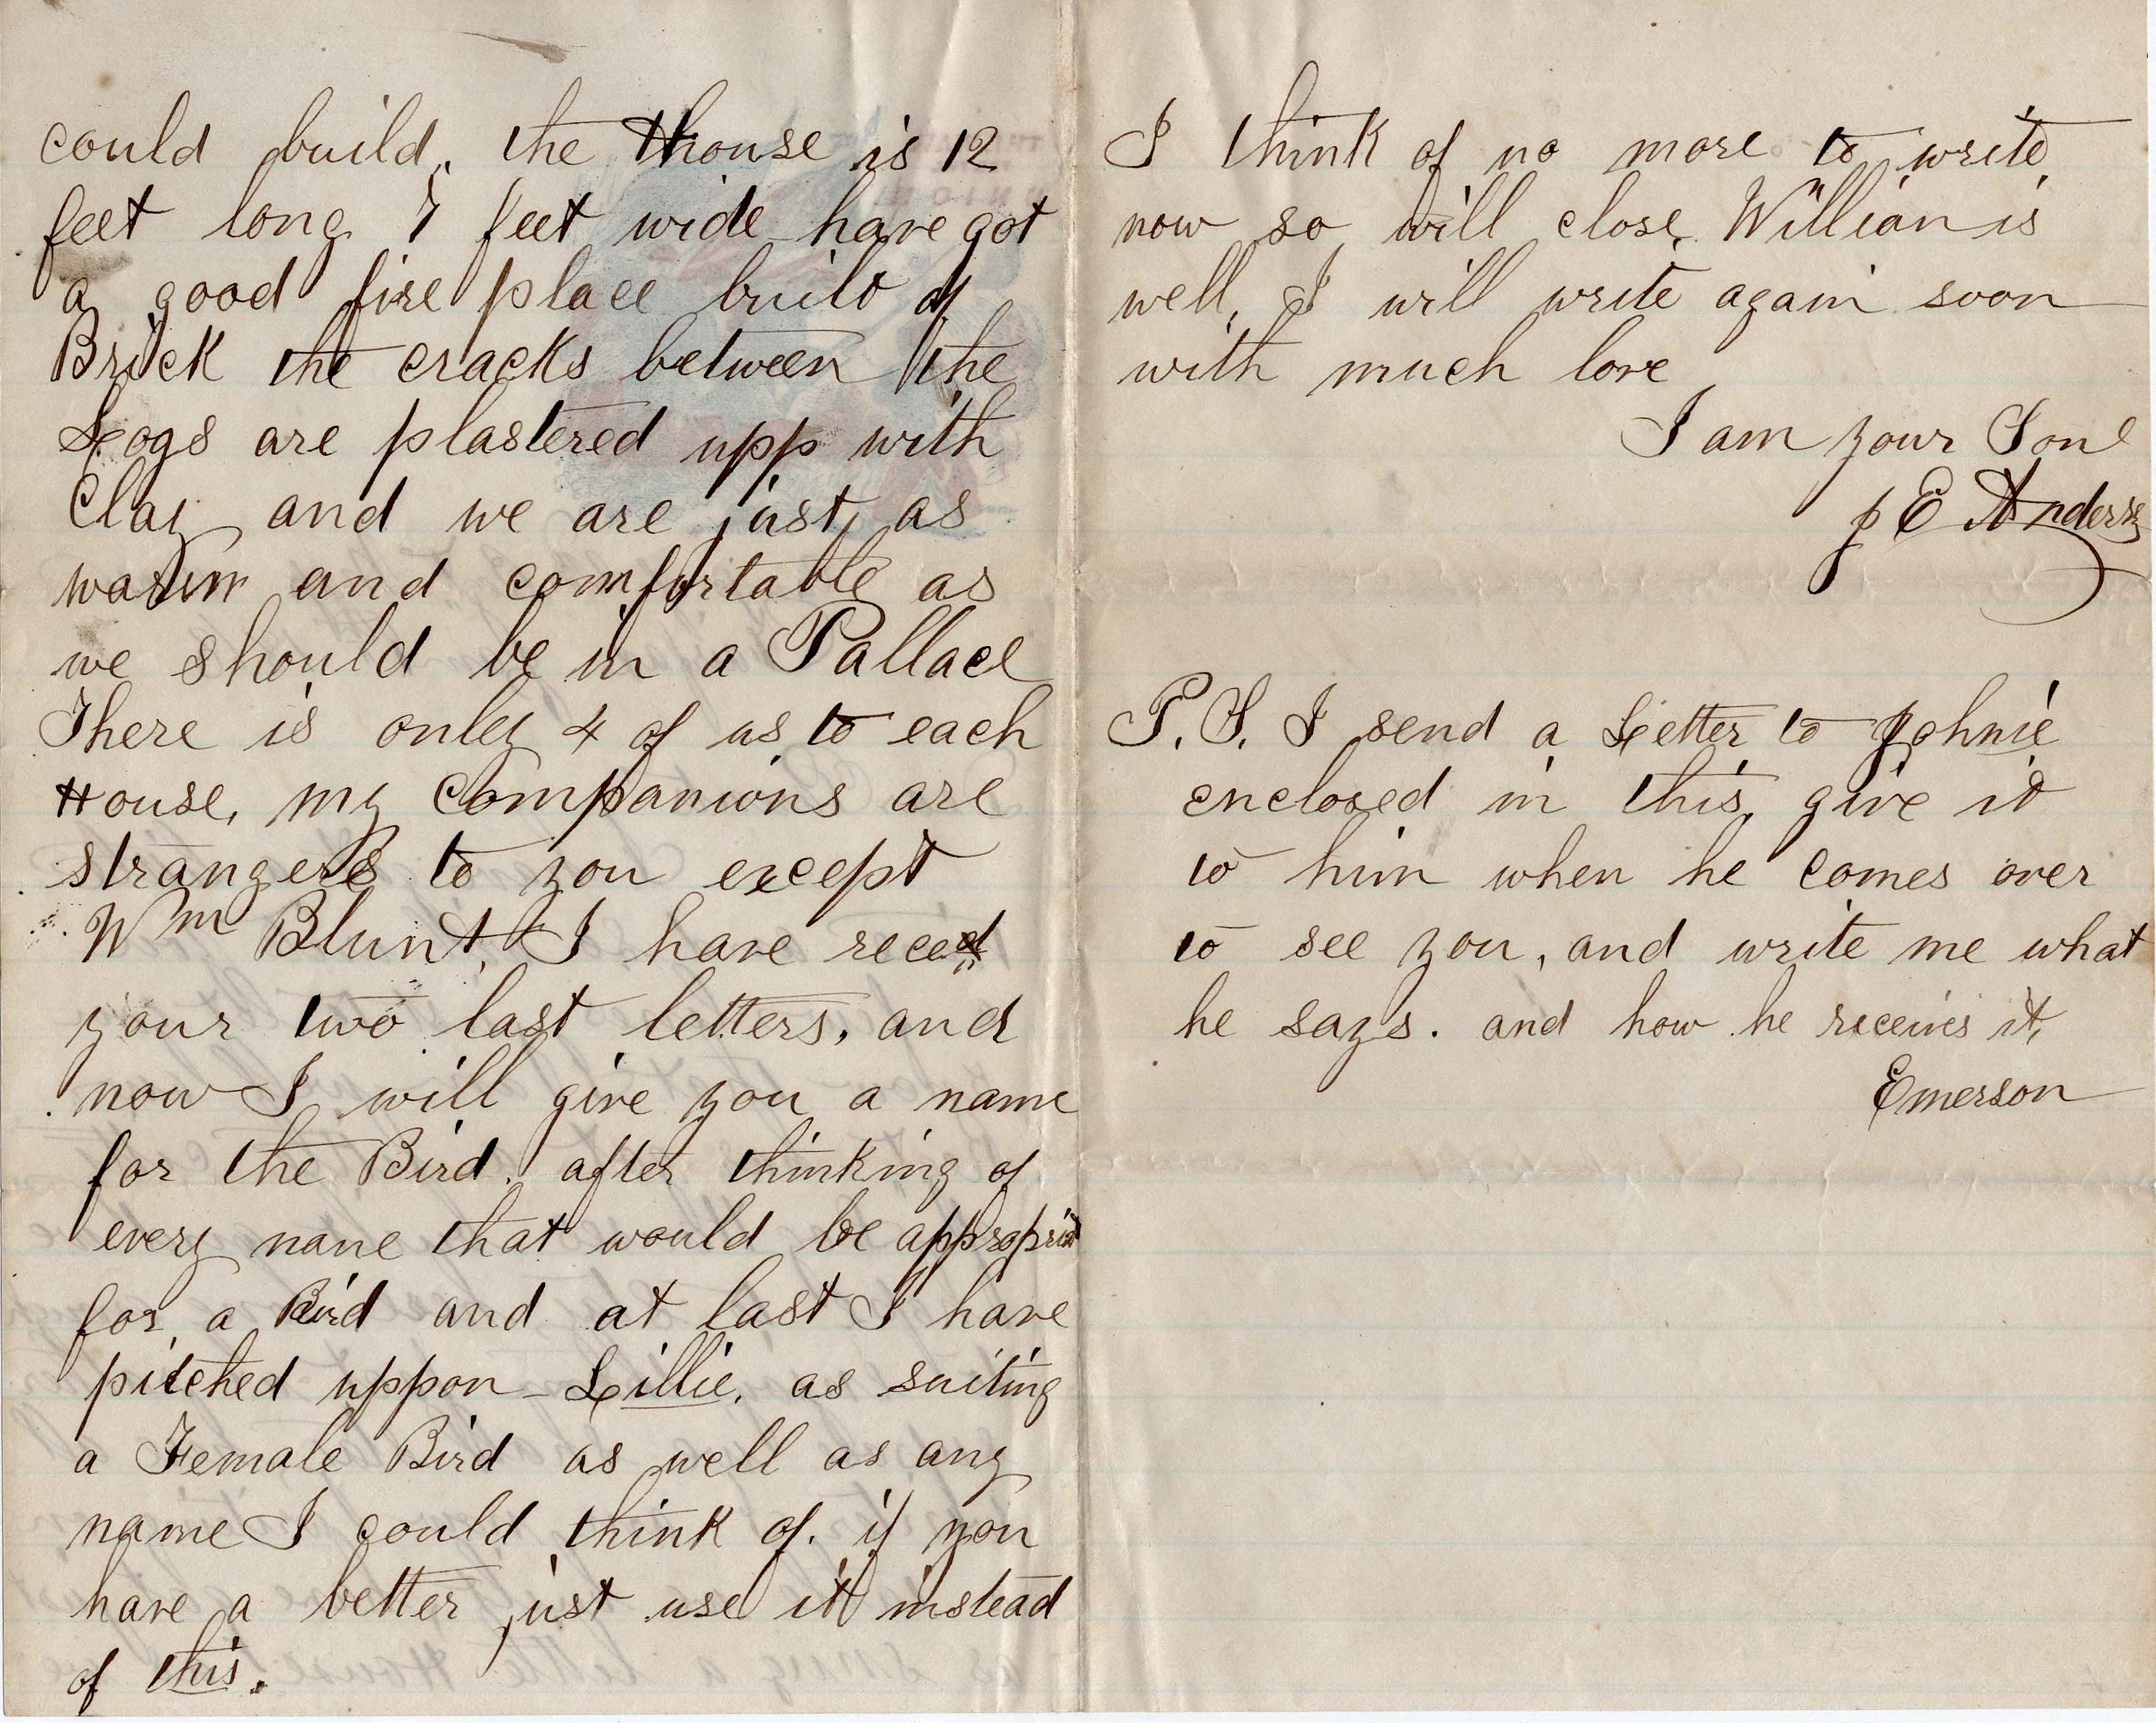 could build, the House is 12
feet long 7 feet wide have got
a good fire place built of
Brick the cracks between the
Logs are plastered upp with
Clay and we are just as
warm and comfortable as
we should be in a Pallace
There is only 4 of us to each
House, my companions are
strangers to you except
Wm Blunt, I have receed
your two last letters, and
now I will give you a name
for the Bird. after thinking of
every name that would be appropriat
for a Bird and at last I have
pitched uppon Lillie, as suiting
a Female Bird as well as any
name I could think of. if you
have a better just use it instead
of this.
I think of no more to write
now so will close, William is
well, I will write again soon
with much love
I am your Son
J E Anderson
P.S. I send a Letter to Johnie
enclosed in this, give it
to him when he comes over
to see you, and write me what
he says. and how he receives it,
Emerson